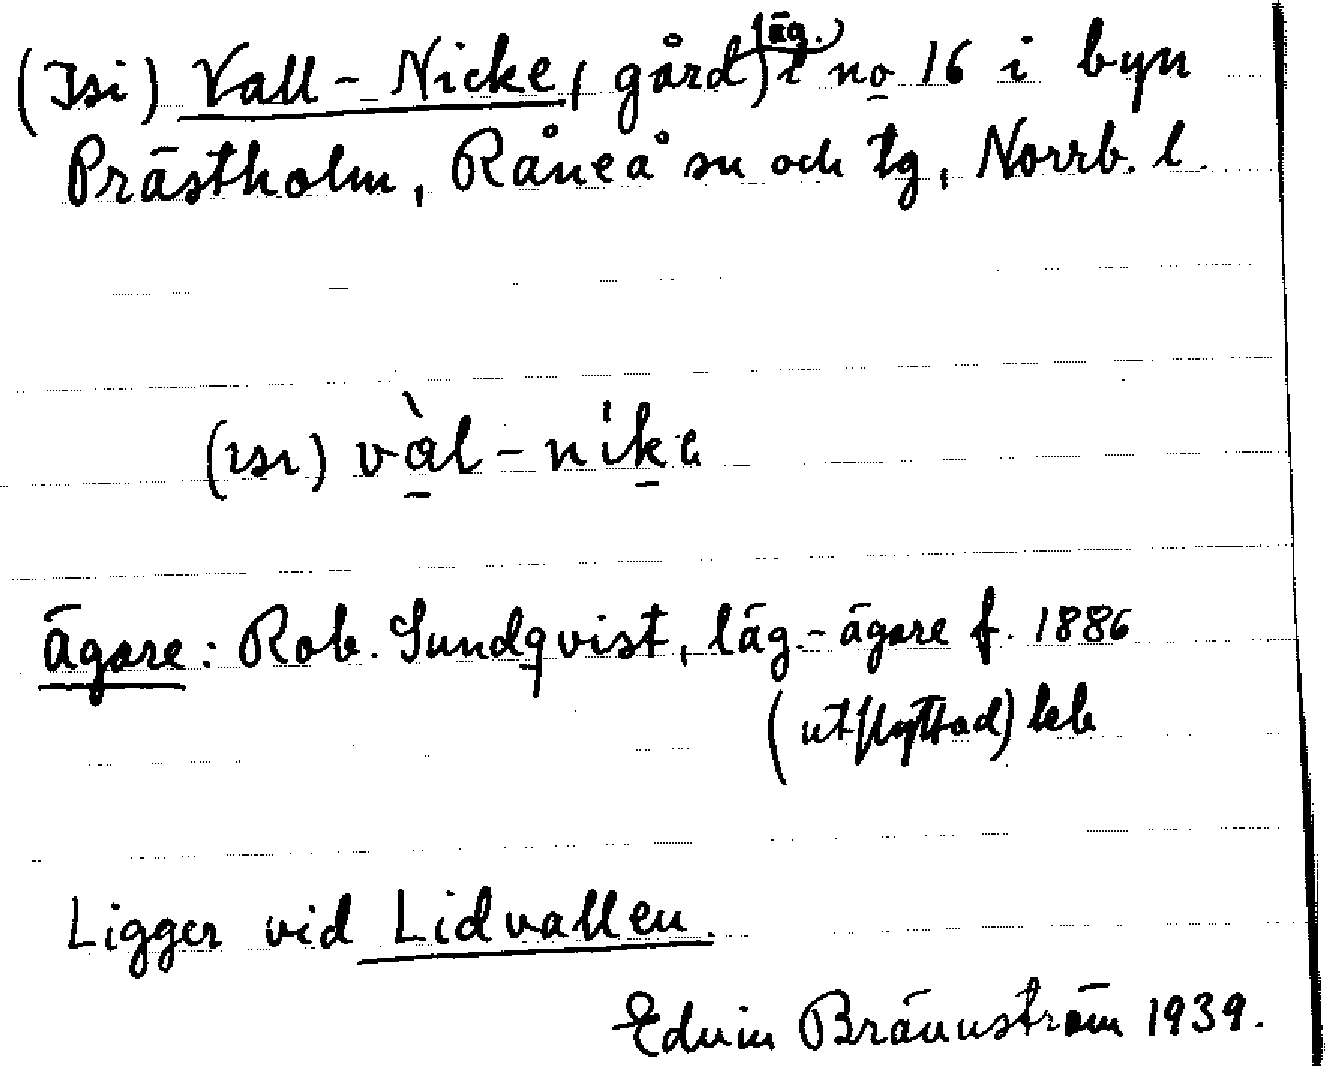 (Isi) Vall-Nicke, gård (läg.) i no 16 i byn
Prästholm, Råneå sn och tg, Norrb. l.
(ısı) vàl-nike
Ägare: Rob. Sundqvist, läg.-ägare f. 1886
(utflyttad) beb
Ligger vid Lidvallen.
Edvin Brännström 1939.